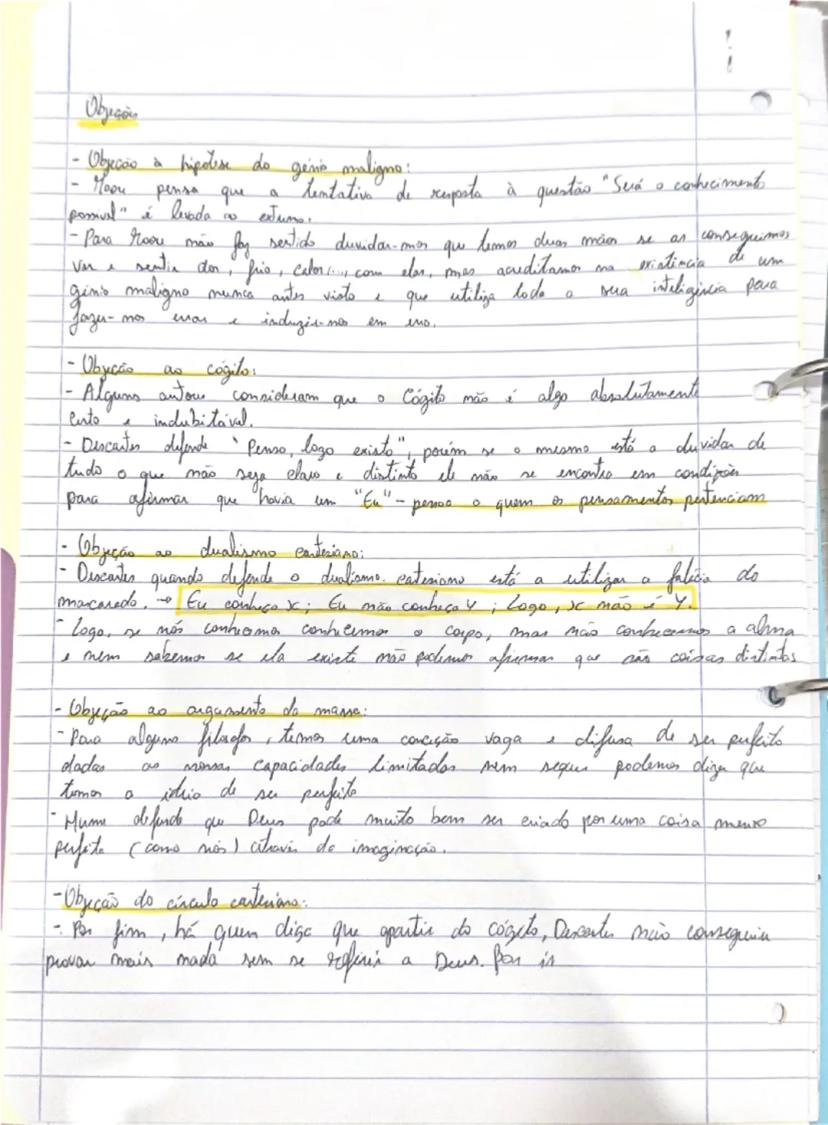 Objeções
- Objeção à hipótese do génio maligno:
- Moore pensa que a tentativa de resposta à questão "Será o conhecimento
possível" é levada ao extremo.
- Para Moore não faz sentido duvidar-mos que temos duas mãos se as conseguimos
ver e sentir dor, frio, calor,..., com elas, mas acreditamos na existência de um
génio maligno nunca antes visto e que utiliza toda a sua inteligência para
fazer-nos errar e induzir-nos em erro.
- Objeção ao cógito:
- Alguns autores consideram que o Cógito não é algo absolutamente
certo e indubitável.
- Descartes defende "Penso, logo existo", porém se o mesmo está a duvidar de
tudo o que não seja claro e distinto ele não se encontra em condições
para afirmar que havia um "Eu" - pessoa a quem os pensamentos pertenciam
- Objeção ao dualismo cartesiano:
- Descartes quando defende o dualismo cartesiano está a utilizar a falácia do
mascarado. → Eu conheço x; Eu não conheço y; Logo, x não é y.
- Logo, se nós conhecemos o corpo, mas não conhecemos a alma
e nem sabemos se ela existe não podemos afirmar que são coisas distintas
- Objeção ao argumento da marca:
- Para alguns filósofos, temos uma conceção vaga e difusa de ser perfeito
dadas as nossas capacidades limitadas nem sequer podemos dizer que
temos a ideia de ser perfeito
- Hume defende que Deus pode muito bem ser criado por uma coisa menos
perfeita (como nós) através da imaginação.
- Objeção do círculo cartesiano:
- Por fim, há quem diga que apartir do cógito, Descartes não conseguiu
provar mais nada sem se referir a Deus. Por is